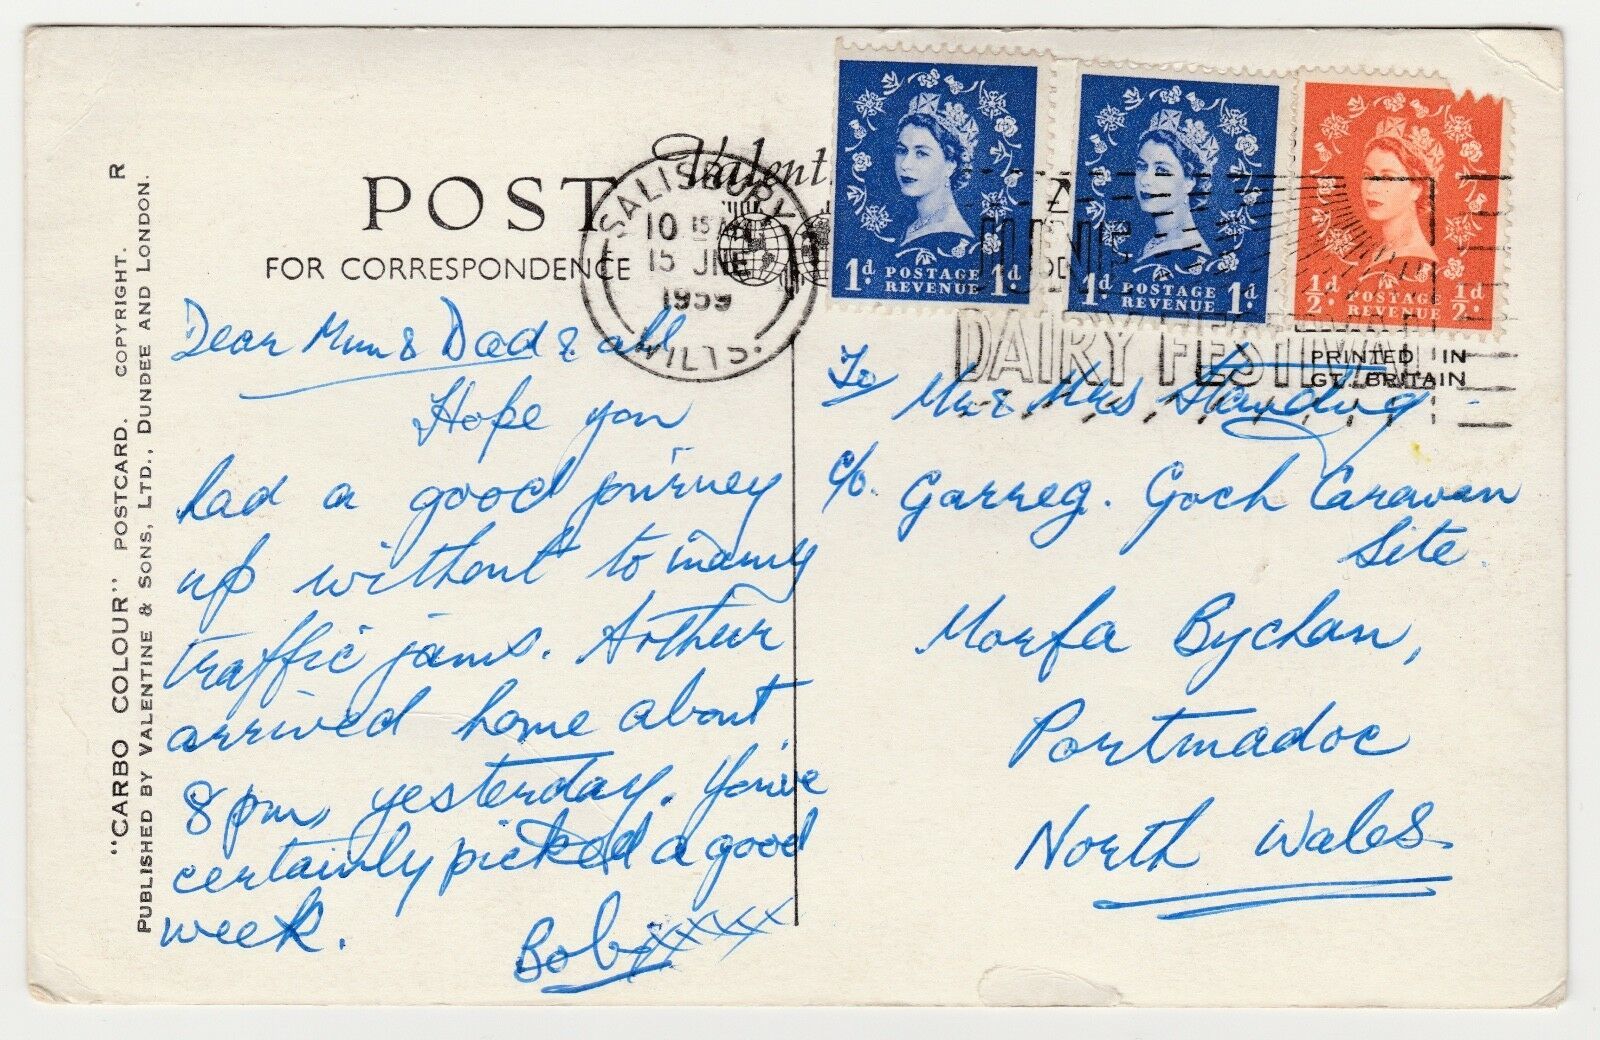 "CARBO COLOUR" POSTCARD. COPYRIGHT. R
PUBLISHED BY VALENTINE & SONS, LTD., DUNDEE AND LONDON.
Valent
POST
FOR CORRESPONDENCE
SALISBURY
10 15 AM
15 JNE
1959
WILTS.
1d POSTAGE 1d
REVENUE
1d POSTAGE 1d
REVENUE
½d POSTAGE ½d
REVENUE
JUNE
DAIRY FESTIVAL
PRINTED IN
GT. BRITAIN
Dear Mum & Dad & all
Hope you
had a good journey
up without to many
traffic jams. Arthur
arrived home about
8pm yesterday. You've
certainly picked a good
week.
Bob xxxxxxx
To Mr & Mrs Standing
c/o. Garreg. Goch Caravan
Site.
Morfa Bychan,
Portmadoc
North Wales.